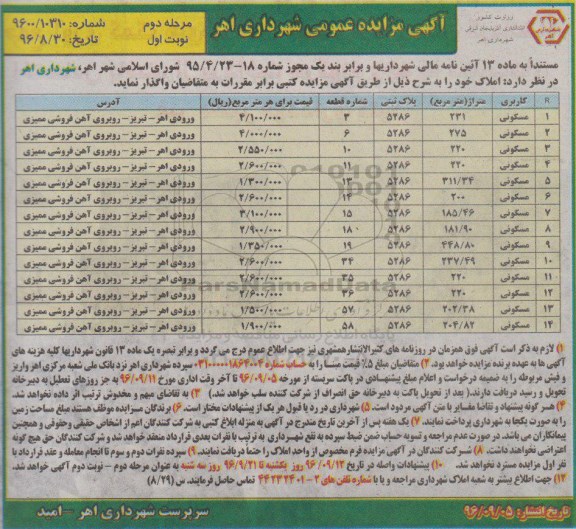 وزارت کشور
استانداری آذربایجان شرقی
شهرداری اهر
آگهی مزایده عمومی شهرداری اهر
مرحله دوم
نوبت اول
شماره: ۹۶۰۰/۱۰۳۱۰
تاریخ: ۹۶/۸/۳۰
مستنداً به ماده ۱۳ آئین نامه مالی شهرداریها و برابر بند یک مجوز شماره ۱۸–۹۵/۴/۲۳ شورای اسلامی شهر اهر، شهرداری اهر
در نظر دارد؛ املاک خود را به شرح ذیل از طریق آگهی مزایده کتبی برابر مقررات به متقاضیان واگذار نماید.
R کاربری متراژ(متر مربع) پلاک ثبتی شماره قطعه قیمت برای هر متر مربع(ریال) آدرس
۱ مسکونی ۲۳۱ ۵۲۸۶ ۳ ۴/۱۰۰/۰۰۰ ورودی اهر – تبریز – روبروی آهن فروشی ممیزی
۲ مسکونی ۲۷۵ ۵۲۸۶ ۶ ۴/۰۰۰/۰۰۰ ورودی اهر – تبریز – روبروی آهن فروشی ممیزی
۳ مسکونی ۲۲۰ ۵۲۸۶ ۱۰ ۲/۵۵۰/۰۰۰ ورودی اهر – تبریز – روبروی آهن فروشی ممیزی
۴ مسکونی ۲۲۰ ۵۲۸۶ ۱۱ ۲/۶۰۰/۰۰۰ ورودی اهر – تبریز – روبروی آهن فروشی ممیزی
۵ مسکونی ۳۱۱/۳۴ ۵۲۸۶ ۱۳ ۲/۳۰۰/۰۰۰ ورودی اهر – تبریز – روبروی آهن فروشی ممیزی
۶ مسکونی ۲۰۰ ۵۲۸۶ ۱۴ ۲/۶۰۰/۰۰۰ ورودی اهر – تبریز – روبروی آهن فروشی ممیزی
۷ مسکونی ۱۸۵/۴۶ ۵۲۸۶ ۱۵ ۳/۱۰۰/۰۰۰ ورودی اهر – تبریز – روبروی آهن فروشی ممیزی
۸ مسکونی ۱۸۱/۹۰ ۵۲۸۶ ۱۸ ۲/۹۰۰/۰۰۰ ورودی اهر – تبریز – روبروی آهن فروشی ممیزی
۹ مسکونی ۴۴۸/۸۰ ۵۲۸۶ ۱۹ ۱/۳۵۰/۰۰۰ ورودی اهر – تبریز – روبروی آهن فروشی ممیزی
۱۰ مسکونی ۲۳۷/۴۹ ۵۲۸۶ ۳۴ ۲/۶۰۰/۰۰۰ ورودی اهر – تبریز – روبروی آهن فروشی ممیزی
۱۱ مسکونی ۲۲۰ ۵۲۸۶ ۳۵ ۲/۶۰۰/۰۰۰ ورودی اهر – تبریز – روبروی آهن فروشی ممیزی
۱۲ مسکونی ۲۲۰ ۵۲۸۶ ۳۶ ۲/۶۰۰/۰۰۰ ورودی اهر – تبریز – روبروی آهن فروشی ممیزی
۱۳ مسکونی ۲۰۲/۳۸ ۵۲۸۶ ۵۷ ۱/۵۰۰/۰۰۰ ورودی اهر – تبریز – روبروی آهن فروشی ممیزی
۱۴ مسکونی ۲۰۴/۸۲ ۵۲۸۶ ۵۸ ۱/۹۰۰/۰۰۰ ورودی اهر – تبریز – روبروی آهن فروشی ممیزی
۱) لازم به ذکر است آگهی فوق همزمان در روزنامه های کثیرالانتشار همشهری نیز جهت اطلاع عموم درج می گردد و برابر تبصره یک ماده ۱۳ قانون شهرداریها کلیه هزینه های
آگهی ها به عهده برنده مزایده خواهد بود. ۲) متقاضیان مبلغ ۵٪ قیمت مبنا را به حساب شماره ۰۳۱۰۰۰۰۰۱۸۶۴۰۰۴ سپرده شهرداری اهر نزد بانک ملی شعبه مرکزی اهر واریز
و فیش مربوطه را به ضمیمه درخواست و اعلام مبلغ پیشنهادی در پاکت سربسته از مورخه ۹۶/۰۹/۰۵ تا آخر وقت اداری مورخ ۹۶/۰۹/۱۱ به جز روزهای تعطیل به دبیرخانه
تحویل و رسید دریافت دارند.( بعد از تحویل پاکت به دبیرخانه حق انصراف از شرکت کننده سلب خواهد شد.) ۳) به تقاضای مبهم و مخدوش ترتیب اثر داده نخواهد شد.
۴) هر گونه پیشنهاد و تقاضا مغایر با متن آگهی مردود است. ۵) شهرداری در رد یا قبول هر یک از پیشنهادات مختار است. ۶) برندگان مسترده موظف هستند مبلغ مساحت زمین
را به صورت یکجا به شهرداری پرداخت نمایند. ۷) یک هفته پس از آخرین تاریخ مندرج در آگهی به منزله ابلاغ کتبی به شرکت کنندگان اعم از اشخاص حقیقی و حقوقی و همچنین
پیمانکاران می باشد. در صورت عدم مراجعه و تسویه حساب ضمن ضبط سپرده به نفع شهرداری به ترتیب با نفرات بعدی قرارداد منعقد خواهد شد و شرکت کنندگان حق هیچ گونه
اعتراضی نخواهند داشت. ۸) شرکت کنندگان در آگهی مزایده فرم مخصوص از واحد املاک را حتما دریافت نمایند. ۹) سپرده نفرات دوم و سوم تا انجام معامله و عقد قرارداد با
نفر اول مزایده مسترد نخواهد شد. ۱۰) پیشنهادات واصله در تاریخ ۹۶/۰۹/۱۲ روز یکشنبه تا ۹۶/۹/۲۱ روز سه شنبه به عنوان مرحله دوم – نوبت دوم آگهی خواهد شد.
۱۲) جهت اطلاع بیشتر به شعبه املاک شهرداری مراجعه و یا با شماره تلفن های ۲–۴۴۲۳۲۴۰۱ تماس حاصل فرمایند. س (۸/۲۹)
تاریخ انتشار: ۹۶/۰۹/۰۵
سرپرست شهرداری اهر – امید